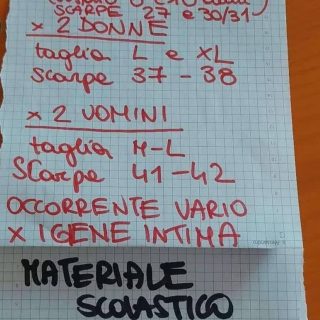 SCARPE 27 e 30/31
x 2 DONNE
taglia L e XL
scarpe 37 - 38
x 2 UOMINI
taglia M-L
SCarpe 41-42
OCCORRENTE VARIO
x IGENE INTIMA
MATERIALE
SCOLASTICO